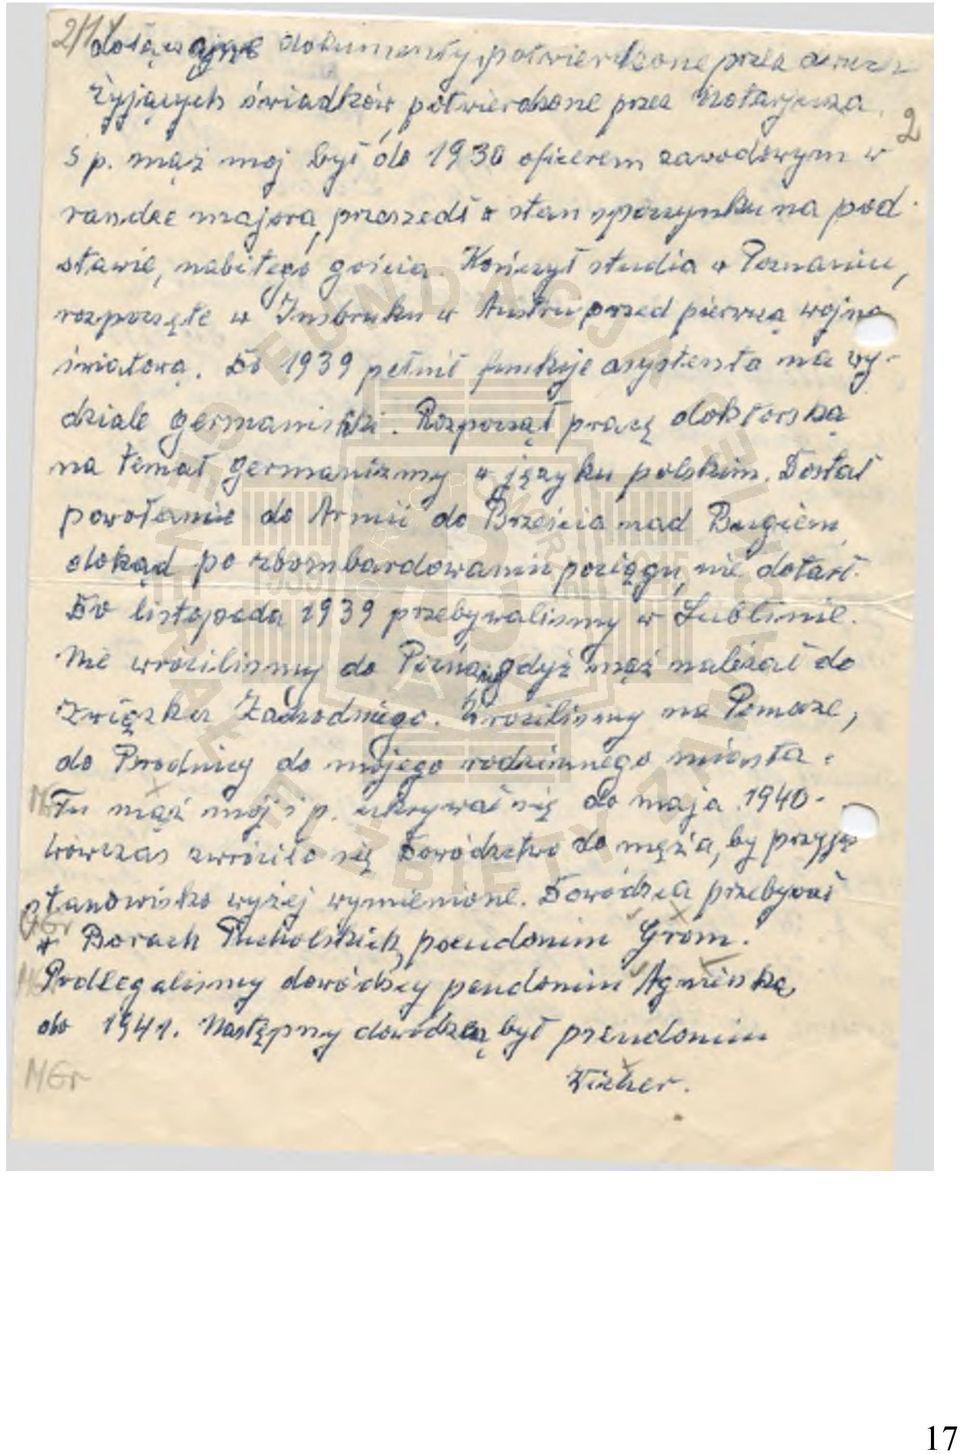 2/1
dołączając dokumenty, potwierdzone przez dwuch
żyjących świadków potwierdzone przez Notarjusza.
2
ś p. mąż moj był do 1930 oficerem zawodowym w
randze majora, przeszedł w stan spoczynku na pod-
stawie, nabitego gośćca Kończył studia w Poznaniu,
rozpoczęte w Insbruku w Austrii przed pierwszą wojną
światową. Do 1939 pełnił funkcje asystenta na wy-
dziale germanistyki. Rozpoczął pracę doktorską
na temat germanizmy w języku polskim. Dostał
powołanie do Armii do Brześcia nad Bugiem,
dokąd po zbombardowaniu pociągu, nie dotarł.
Do listopada 1939 przebywaliśmy w Lublinie.
Nie wróciliśmy do Pozna, gdyż mąż należał do
Związku Zachodniego. Wróciliśmy na Pomorze,
do Brodnicy do mojego rodzinnego miasta.
Tu mąż mój ś p. ukrywał się do maja 1940-
wówczas zwróciło się Dowództwo do męża, by przyjął
stanowisko wyżej wymienione. Dowódca przebywał
w Borach Tucholskich, pseudonim Grom.
Podlegaliśmy dowódcy pseudonim Agnieszka,
do 1941. Następny dowódcą był pseudonim
Wicher.
MGr
FUNDACJA GENERAŁ ELŻBIETY ZAWACKIEJ
1939 1945
17